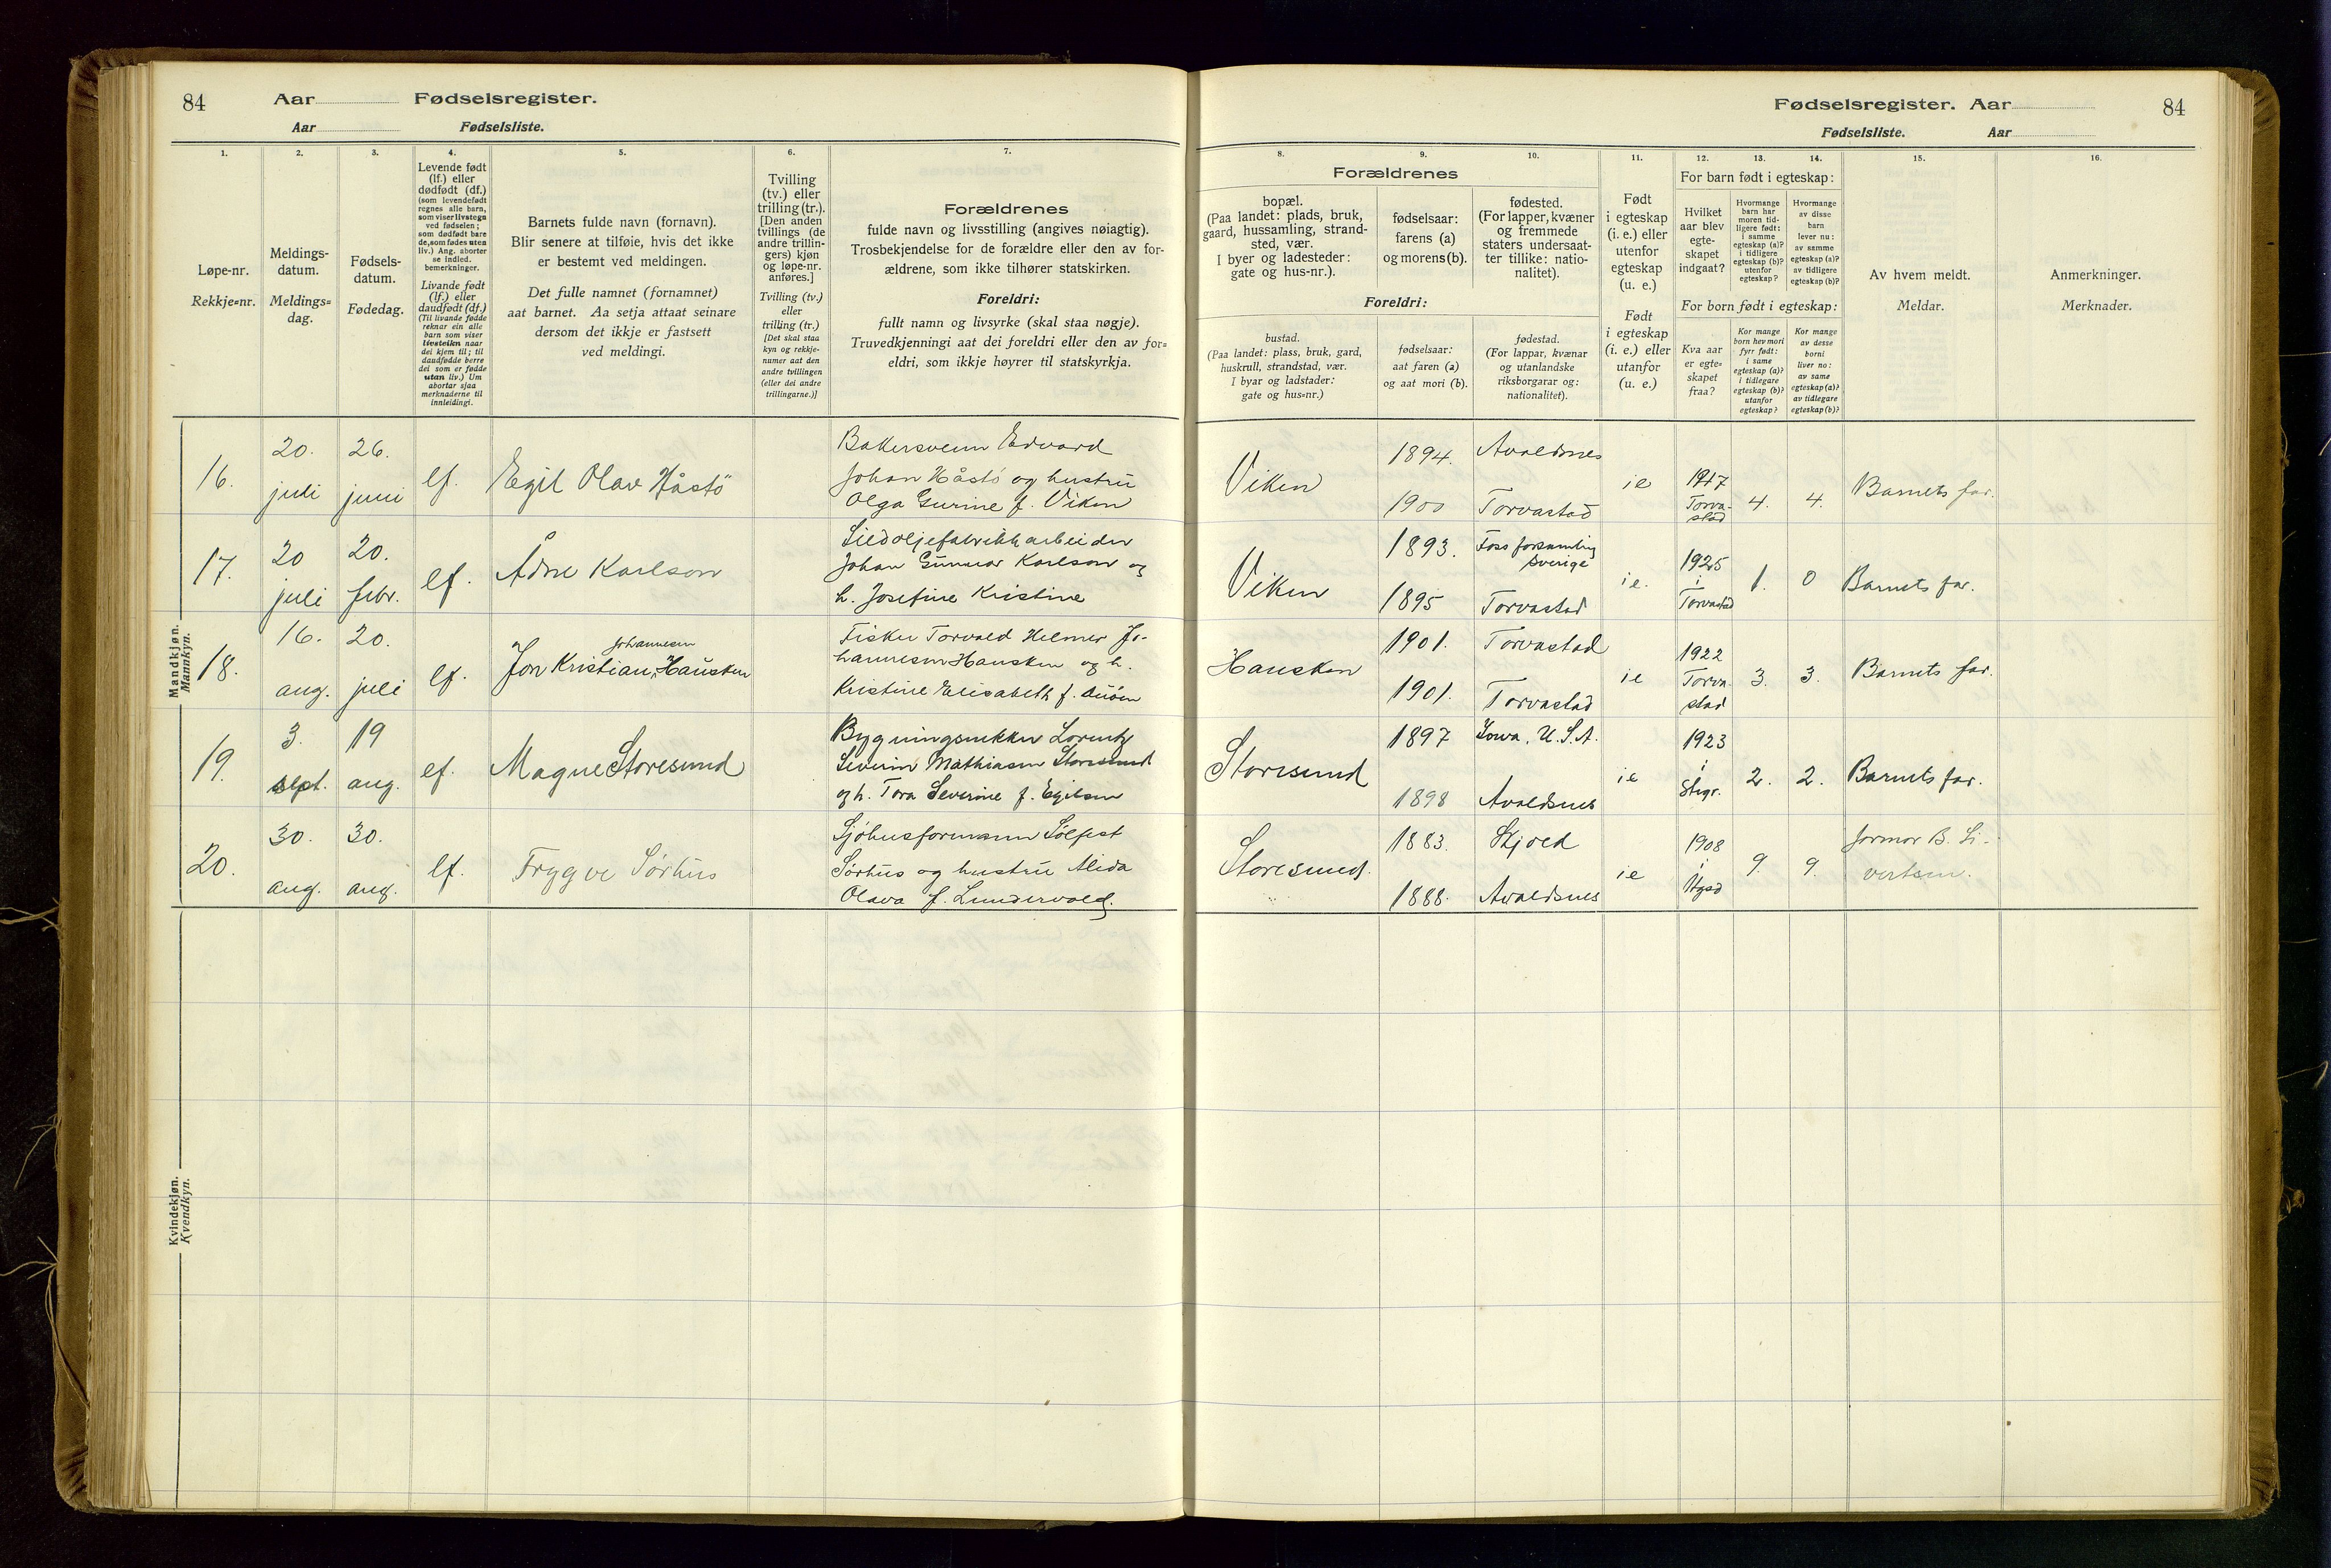 84
Aar
Fødselsregister.
Aar
Fødselsliste.
Fødselsregister. Aar
84
Fødselsliste. Aar
1.
2.
3.
4.
5.
6.
7.
8.
9.
10.
11.
12.
13.
14.
15.
16.
Løpe-nr.
Rekkje=nr.
Meldings-
datum.
Meldings=
dag.
Fødsels-
datum.
Fødedag.
Levende født
(lf.) eller
dødfødt (df.)
(som levendefødt
regnes alle barn,
som viser livstegn
ved fødselen;
som dødfødt bare
de, som fødes uten
liv.) Ang. aborter
se indled.
bemerkninger.
Livande født
(lf.) eller
daudfødt (df.)
(Til livande fødde
reknar ein alle
barn som viser
livsteikn naar
dei kjem til; til
daudfødde berre
dei som er fødde
utan liv.) Um
abortar sjaa
merknaderne til
innleidingi.
Barnets fulde navn (fornavn).
Blir senere at tilføie, hvis det ikke
er bestemt ved meldingen.
Det fulle namnet (fornamnet)
aat barnet. Aa setja attaat seinare
dersom det ikkje er fastsett
ved meldingi.
Tvilling
(tv.) eller
trilling (tr.).
[Den anden
tvillings (de
andre trillin-
gers) kjøn
og løpe-nr.
anføres.]
Tvilling (tv.)
eller
trilling (tr.)
[Det skal staa
kyn og rekkje-
numer aat den
andre tvillingen
(eller dei andre
trillingarne.)]
Forældrenes
fulde navn og livsstilling (angives nøiagtig).
Trosbekjendelse for de forældre eller den av for-
ældrene, som ikke tilhører statskirken.
Foreldri:
fullt namn og livsyrke (skal staa nøgje).
Truvedkjenningi aat dei foreldri eller den av for=
eldri, som ikkje høyrer til statskyrkja.
Forældrenes
bopæl.
(Paa landet: plads, bruk,
gaard, hussamling, strand-
sted, vær.
I byer og ladesteder:
gate og hus-nr.).
fødselsaar:
farens (a)
og morens (b).
fødested.
(For lapper, kvæner
og fremmede
staters undersaat-
ter tillike: natio-
nalitet).
Foreldri:
bustad.
(Paa landet: plass, bruk, gard,
huskrull, strandstad, vær.
I byar og ladstader:
gate og hus=nr.)
fødselsaar:
aat faren (a)
og aat mori (b).
fødestad.
(For lappar, kvænar
og utanlandske
riksborgarar og:
nationalitet).
Født
i egteskap
(i. e.) eller
utenfor
egteskap
(u. e.)
Født
i egteskap
(i. e.) eller
utanfor
(u. e.)
For barn født i egteskap:
Hvilket
aar blev
egte-
skapet
indgaat?
Hvormange
barn har
moren tid-
ligere født:
i samme
egteskap (a)?
i tidligere
egteskap (b)?
utenfor
egteskap?
Hvormange
av disse
barn
lever nu:
av samme
egteskap (a)?
av tidligere
egteskap (b)?
For born født i egteskap:
Kva aar
er egte-
skapet
fraa?
Kor mange
born hev mori
fyrr født:
i same
egteskap (a)?
i tidlegare
egteskap (b)?
utanfor
egteskap?
Kor mange
av desse
borni
liver no:
av same
egteskap (a)?
av tidlegare
egteskap (b)?
Av hvem meldt.
Meldar.
Anmerkninger.
Merknader.
Mandkjøn.
Mannkyn.
16.
20.
juli
26.
juni
lf.
Egil Olav Håstø
Bakersvenn Edvard
Johan Håstø og hustru
Olga Gurine f. Viken
Viken
1894.
1900
Avaldsnes
Torvastad
ie
1917
Torva-
stad
4.
4.
Barnets far.
17.
20
juli
20.
febr.
lf.
Ådne Karlson
Sildoljefabrikkarbeider
Johan Gunnar Karlson og
h. Josefine Kristine
Viken
1893.
1895
Foss forsamling
Sverige
Torvastad
ie.
1925
i
Torvastad
1.
0
Barnets far.
18.
16.
aug.
20.
juli
lf.
Johannesen
Jon Kristian Hausken
Fisker Torvald Helmer Jo-
hannesen Hausken og h.
Kristine Elisabeth f.
Hausken
1901.
1901.
Torvastad
Torvastad
ie
1922
Torva-
stad
3.
3.
Barnets far.
19.
3.
sept.
19
aug.
lf.
Magne Storesund
Bygningsnekker Lorentz
Severin Mathiasen Storesund
og h. Tora Severine f. Egilsen
Storesund
1897
1898
Iowa, U.S.A.
Avaldsnes
ie
1923
i
2.
2.
Barnets far.
20.
30.
aug.
30.
aug.
lf.
Trygve Sørhus
Sjøhusformann Sølfest
Sørhus og hustru Alida
Olava f. Lundervold.
Storesund.
1883.
1888.
Skjold
Avaldsnes
ie
1908
i
9.
9.
Jormor B. Si-
vertsen.
Kvindekjøn.
Kvendkyn.